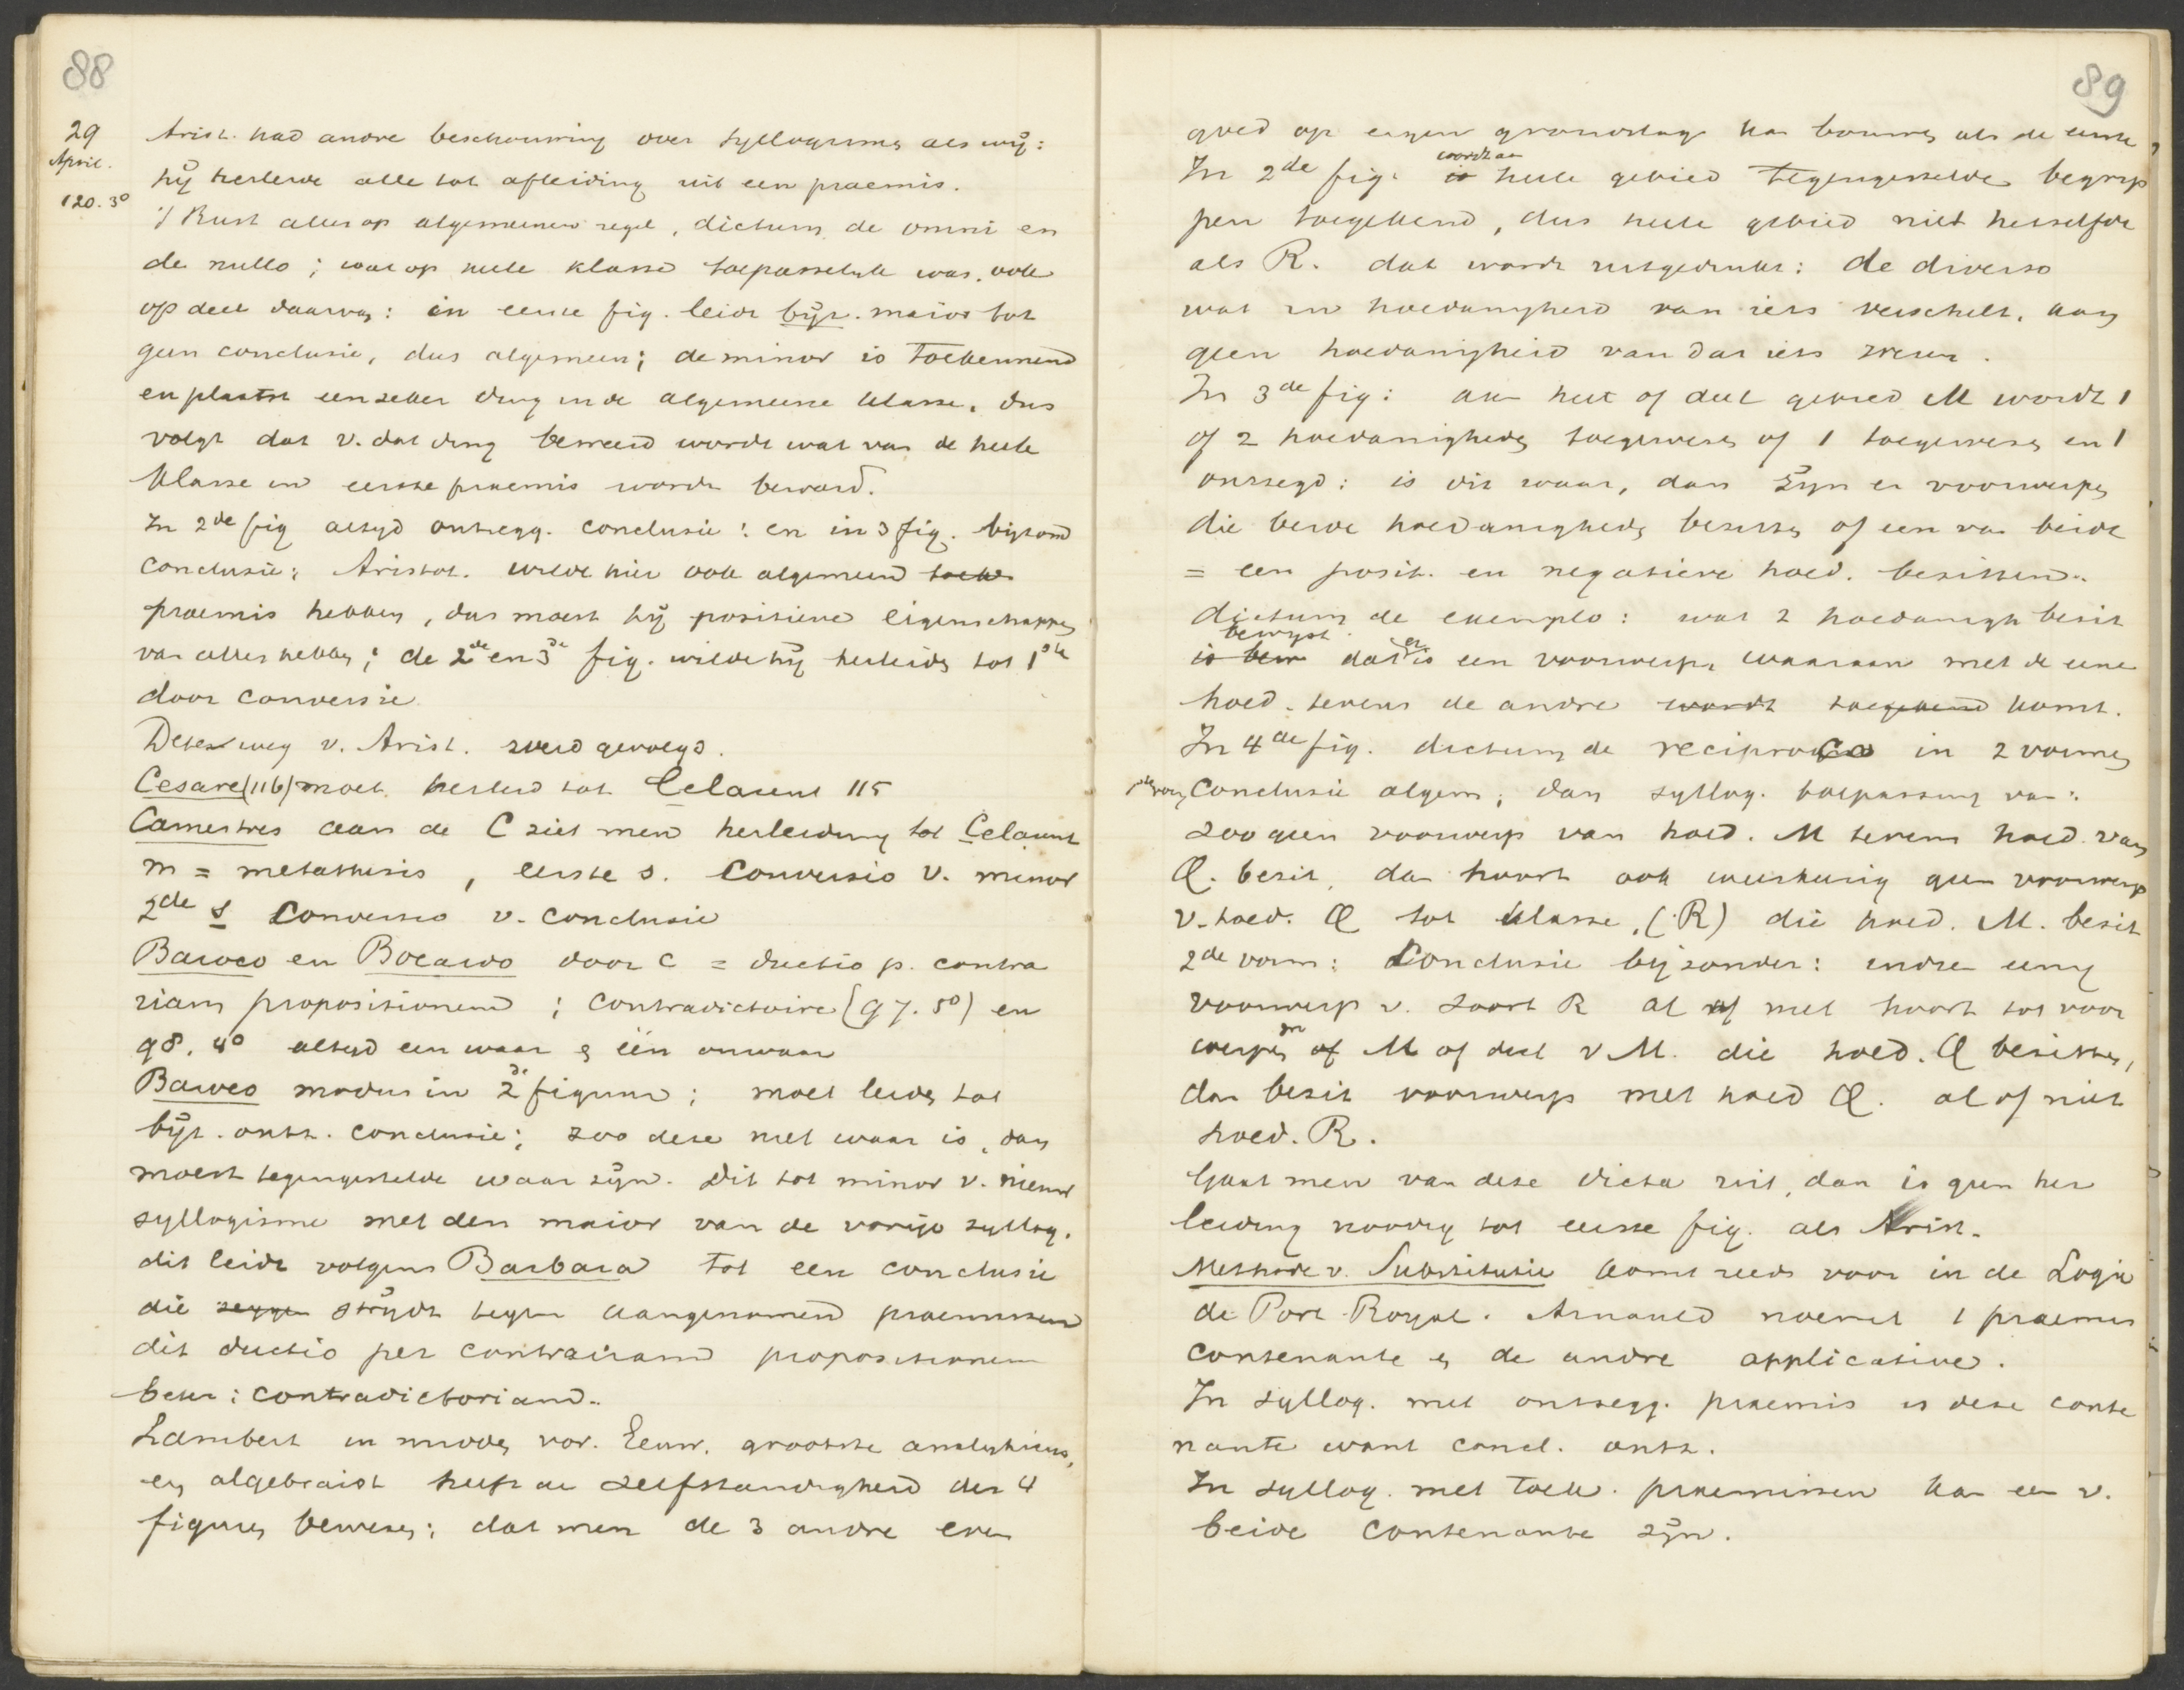 88
29 April.
Arist. had andre beschouwing over syllogisme als wij:
hij herleidde alle tot afleiding uit een praemis.
120. 3º
Rust alles op algemeenen regel, dictum de omni en
de nullo; wat op heele klasse toepasselijk was, ook
op deel daarvan: in eerste fig. leidt bijz. maior tot
geen conclusie, dus algemeen; de minor is toekennend
en plaatst een zeker ding in de algemeene klasse, dus
volgt dat v. dat ding beweerd wordt wat van de heele
klasse in eerste praemis wordt beweerd.
In 2de fig altijd ontkegg. conclusie: en in 3 fig. bijzond
conclusie; Aristot. wilde hier ook algemeene toek
praemis hebben, dus moest hij positieve eigenschappen
van alles hebben; de 2de en 3de fig. wilde hij herleiden tot 1ste
door conversie
Dezen weg v. Arist. werd gevolgd.
Cesare (116) moet herleid tot Celarent 115
Camestres aan de C ziet men herleiding tot Celarent
m = metathesis, eerste s. conversio v. minor
2de s conversio v. conclusie
Baroco en Bocardo door c = ductio p. contra
riam propositionem; contradictoire (97. 5º) en
98. 4º altijd een waar & één onwaar
Baroco modus in 2de figuur; moet leiden tot
bijz. ontk. conclusie; zoo deze niet waar is, dan
moest tegengestelde waar zijn. Dit tot minor v. nieuw
syllogisme met den maior van de vorige syllog.
dit leidt volgens Barbara tot een conclusie
die strijdt tegen aangenomen praemissen
dit ductio per contrariam propositionem
beter: contradictoriam.
Lambert in midden vor. Eeuw. grootste analyticus,
en algebraist heeft de zelfstandigheid der 4
figuren bewezen; dat men de 3 andre even
89
goed op eigen grondslag kan bouwen als de eerste,
In 2de fig. wordt aan heele gebied tegengestelde begrip
pen toegekend, dus heele gebied niet hetzelfde
als R. dat wordt uitgedrukt: de diverso
wat in hoedanigheid van iets verschilt, kan
geen hoedanigheid van dat iets wezen.
In 3de fig: aan heel of deel gebied M wordt 1
of 2 hoedanigheden toegewezen of 1 toegewezen en 1
ontzegd: is dit waar, dan zijn er voorwerpen
die beide hoedanigheden bezitten of een van beide
= een posit. en negatieve hoed. bezittend.
dictum de exemplo: wat 2 hoedanigh bezit
bewijst dat er is een voorwerp, waaraan met de eene
hoed. tevens de andre wordt toegekend komt.
In 4de fig. dictum de reciproco in 2 vormen
1ste vorm Conclusie algem; dan syllog. toepassing van:
zoo geen voorwerp van hoed. M tevens hoed. van
Q. bezit, dan hoort ook wederkeerig geen voorwerp
v. hoed. Q tot klasse, (R) die hoed. M. bezit
2de vorm: Conclusie bijzonder: indien eenig
voorwerp v. soort R al of niet hoort tot voor
werpen of M of deel v M. die hoed. Q bezitten,
dan bezit voorwerp met hoed Q. al of niet
hoed. R.
Gaat men van deze dicta uit, dan is geen her
leiding noodig tot eerste fig. als Arist.
Methode v. Substitutie komt reeds voor in de Logie
de Port-Royal. Arnauld noemt 1 praemis
contenante & de andre applicative.
In syllog. met ontzegg. praemis is deze conte
nante want concl. ontk.
In syllog. met toek. praemissen kan een v.
beide contenante zijn.